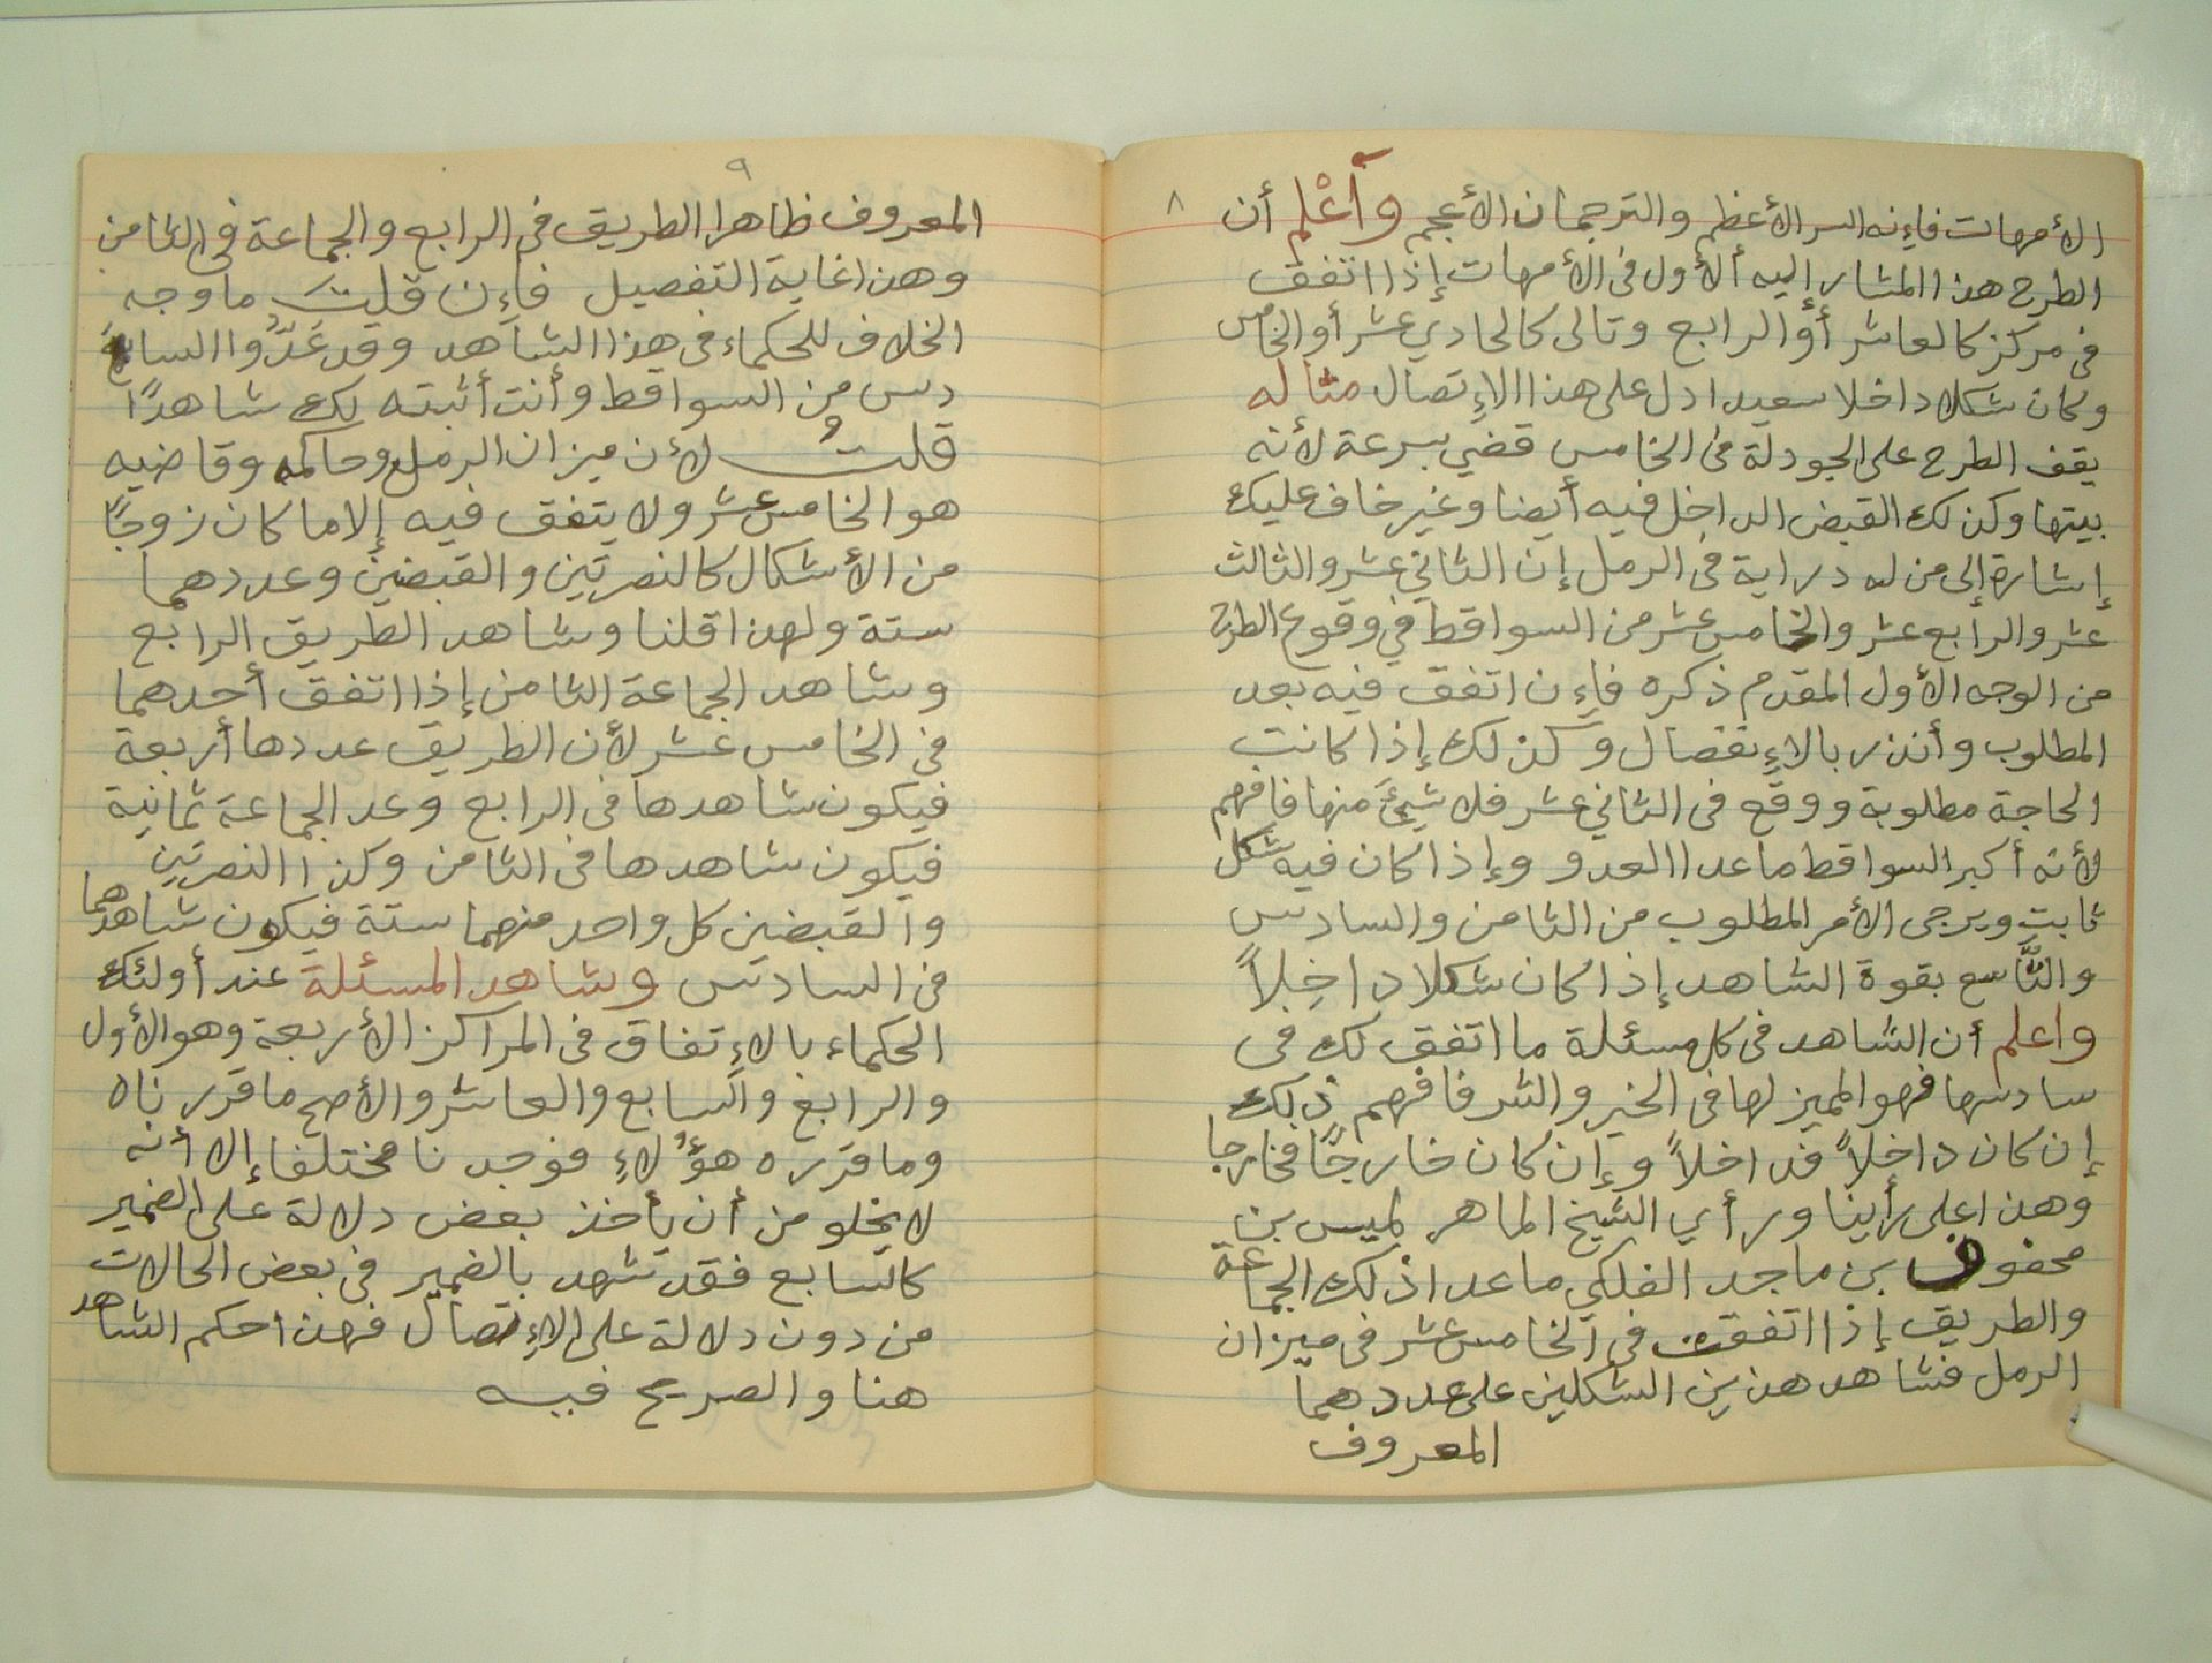 ٨
الأمهات فإنه السر الأعظم والترجمان الأعجم وآعْلم أن
الطرح هذا المشار إليه ألأول فى الأمهات إذا اتفق
فى مركز كالعاشر أو الرابع وتالى كالحادي عشر أو الخامس
وكان شكلا داخلا سعيدا دل على هذا الإتصال مثاله
يقف الطرح على الجودلة فى الخامس قضي بسرعة لأنه
بيتها وكذلك القبض الداخل فيه أيضا وغير خاف عليك
إشارة إلى من له دراية فى الرمل إن الثاني عشر والثالث
عشر والرابع عشر والخامس عشر من السواقط في وقوع الطرح
من الوجه الأول المقدم ذكره فإن اتفق فيه بعد
المطلوب وأنذر بالإنفصال وكذلك إذا كانت
الحاجة مطلوبة ووقع فى الثاني عشر فلا شيئ منها فافهم
لأنه أكبر السواقط ما عدا العدو وإذا كان فيه شكل
ثابت ويرجى الأمر المطلوب من الثامن والسادس
والتَّاسع بقوة الشاهد إذا كان شكلا داخِلاً
واعلم أن الشاهد فى كل مسئلة ما اتفق لك فى
سادسها فهو المميز لها فى الخير والشر فافهم ذلك
إن كان داخلاً فداخلاً وإن كان خارجًا فخارجا
وهذا على رأينا ورأي الشيخ الماهر لميس بن
محفوف بن ماجد الفلكي ما عدا ذلك الجماعة
والطريق إذا اتفقت في الخامس عشر فى ميزان
الرمل فشاهد هذين الشكلين على عددهما
المعروف
٩
المعروف ظاهرا الطريق فى الرابع والجماعة فى الثامن
وهذا غاية التفصيل فإن قلت ما وجه
الخلاف للحكماء فى هذا الشاهد وقد عَدُّوا السا
دس من السواقط وأنت أثبته لك شاهدًا
قلتُ لأن ميزان الرمل وحاكمه وقاضيه
هو الخامس عشر ولا يتفق فيه إلا ما كان زوجًا
من الأشكال كالنصرتين والقبضين وعددهما
ستة ولهذا قلنا وشاهد الطريق الرابع
وشاهد الجماعة الثامن إذا اتفق أحدهما
فى الخامس عشر لأن الطريق عددها أربعة
فيكون شاهدها فى الرابع وعد الجماعة ثمانية
فيكون شاهدها فى الثامن وكذا النصرتين
والقبضين كل واحد منهما ستة فيكون شاهدهما
فى السادس وشاهد المسئلة عند أولئك
الحكماء بالإتفاق فى المراكز الأربعة وهو الأول
والرابع والسابع والعاشر والأصح ما قررناه
وما قرره هؤُلاءِ فوجدنا مختلفا إلا أنه
لا يخلو من أن يأخذ بعض دلالة على الضمير
كالسابع فقد تشهد بالضمير فى بعض الحالات
من دون دلالة على الإتصال فهذا حكم الشاهد
هنا والصريح فيه